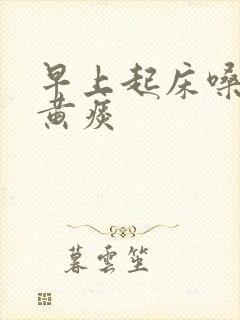 早上起床嗓
黄痰
暮雲笙